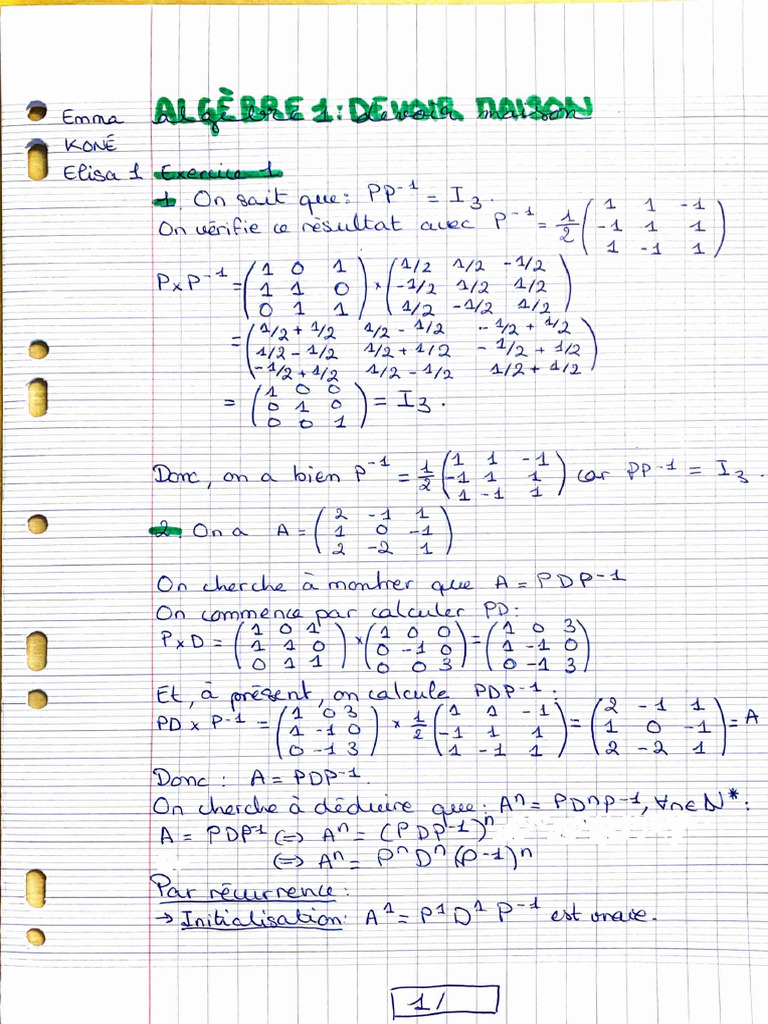 ALGÈBRE 1 : DEVOIR MAISON
algèbre 1 : devoir maison
Emma
KONÉ
Elisa 1
Exercice 1
1. On sait que : PP⁻¹ = I₃.
On vérifie ce résultat avec P⁻¹ = 1/2 ( 1 1 -1
-1 1 1
1 -1 1 )
P × P⁻¹ = ( 1 0 1
1 1 0
0 1 1 ) × ( 1/2 1/2 -1/2
-1/2 1/2 1/2
1/2 -1/2 1/2 )
= ( 1/2 + 1/2 1/2 - 1/2 -1/2 + 1/2
1/2 - 1/2 1/2 + 1/2 -1/2 + 1/2
-1/2 + 1/2 1/2 - 1/2 1/2 + 1/2 )
= ( 1 0 0
0 1 0
0 0 1 ) = I₃.
Donc, on a bien P⁻¹ = 1/2 ( 1 1 -1
-1 1 1
1 -1 1 ) car PP⁻¹ = I₃.
2. On a A = ( 2 -1 1
1 0 -1
2 -2 1 )
On cherche à montrer que A = PDP⁻¹
On commence par calculer PD :
P × D = ( 1 0 1
1 1 0
0 1 1 ) × ( 1 0 0
0 -1 0
0 0 3 ) = ( 1 0 3
1 -1 0
0 -1 3 )
Et, à présent, on calcule PDP⁻¹ :
PD × P⁻¹ = ( 1 0 3
1 -1 0
0 -1 3 ) × 1/2 ( 1 1 -1
-1 1 1
1 -1 1 ) = ( 2 -1 1
1 0 -1
2 -2 1 ) = A
Donc : A = PDP⁻¹.
On cherche à déduire que : Aⁿ = PDⁿP⁻¹, ∀n∈N* :
A = PDP⁻¹ (=) Aⁿ = (PDP⁻¹)ⁿ
(=) Aⁿ = PⁿDⁿ(P⁻¹)ⁿ
Par récurrence :
→ Initialisation : A¹ = P¹D¹P⁻¹ est vraie.
1/